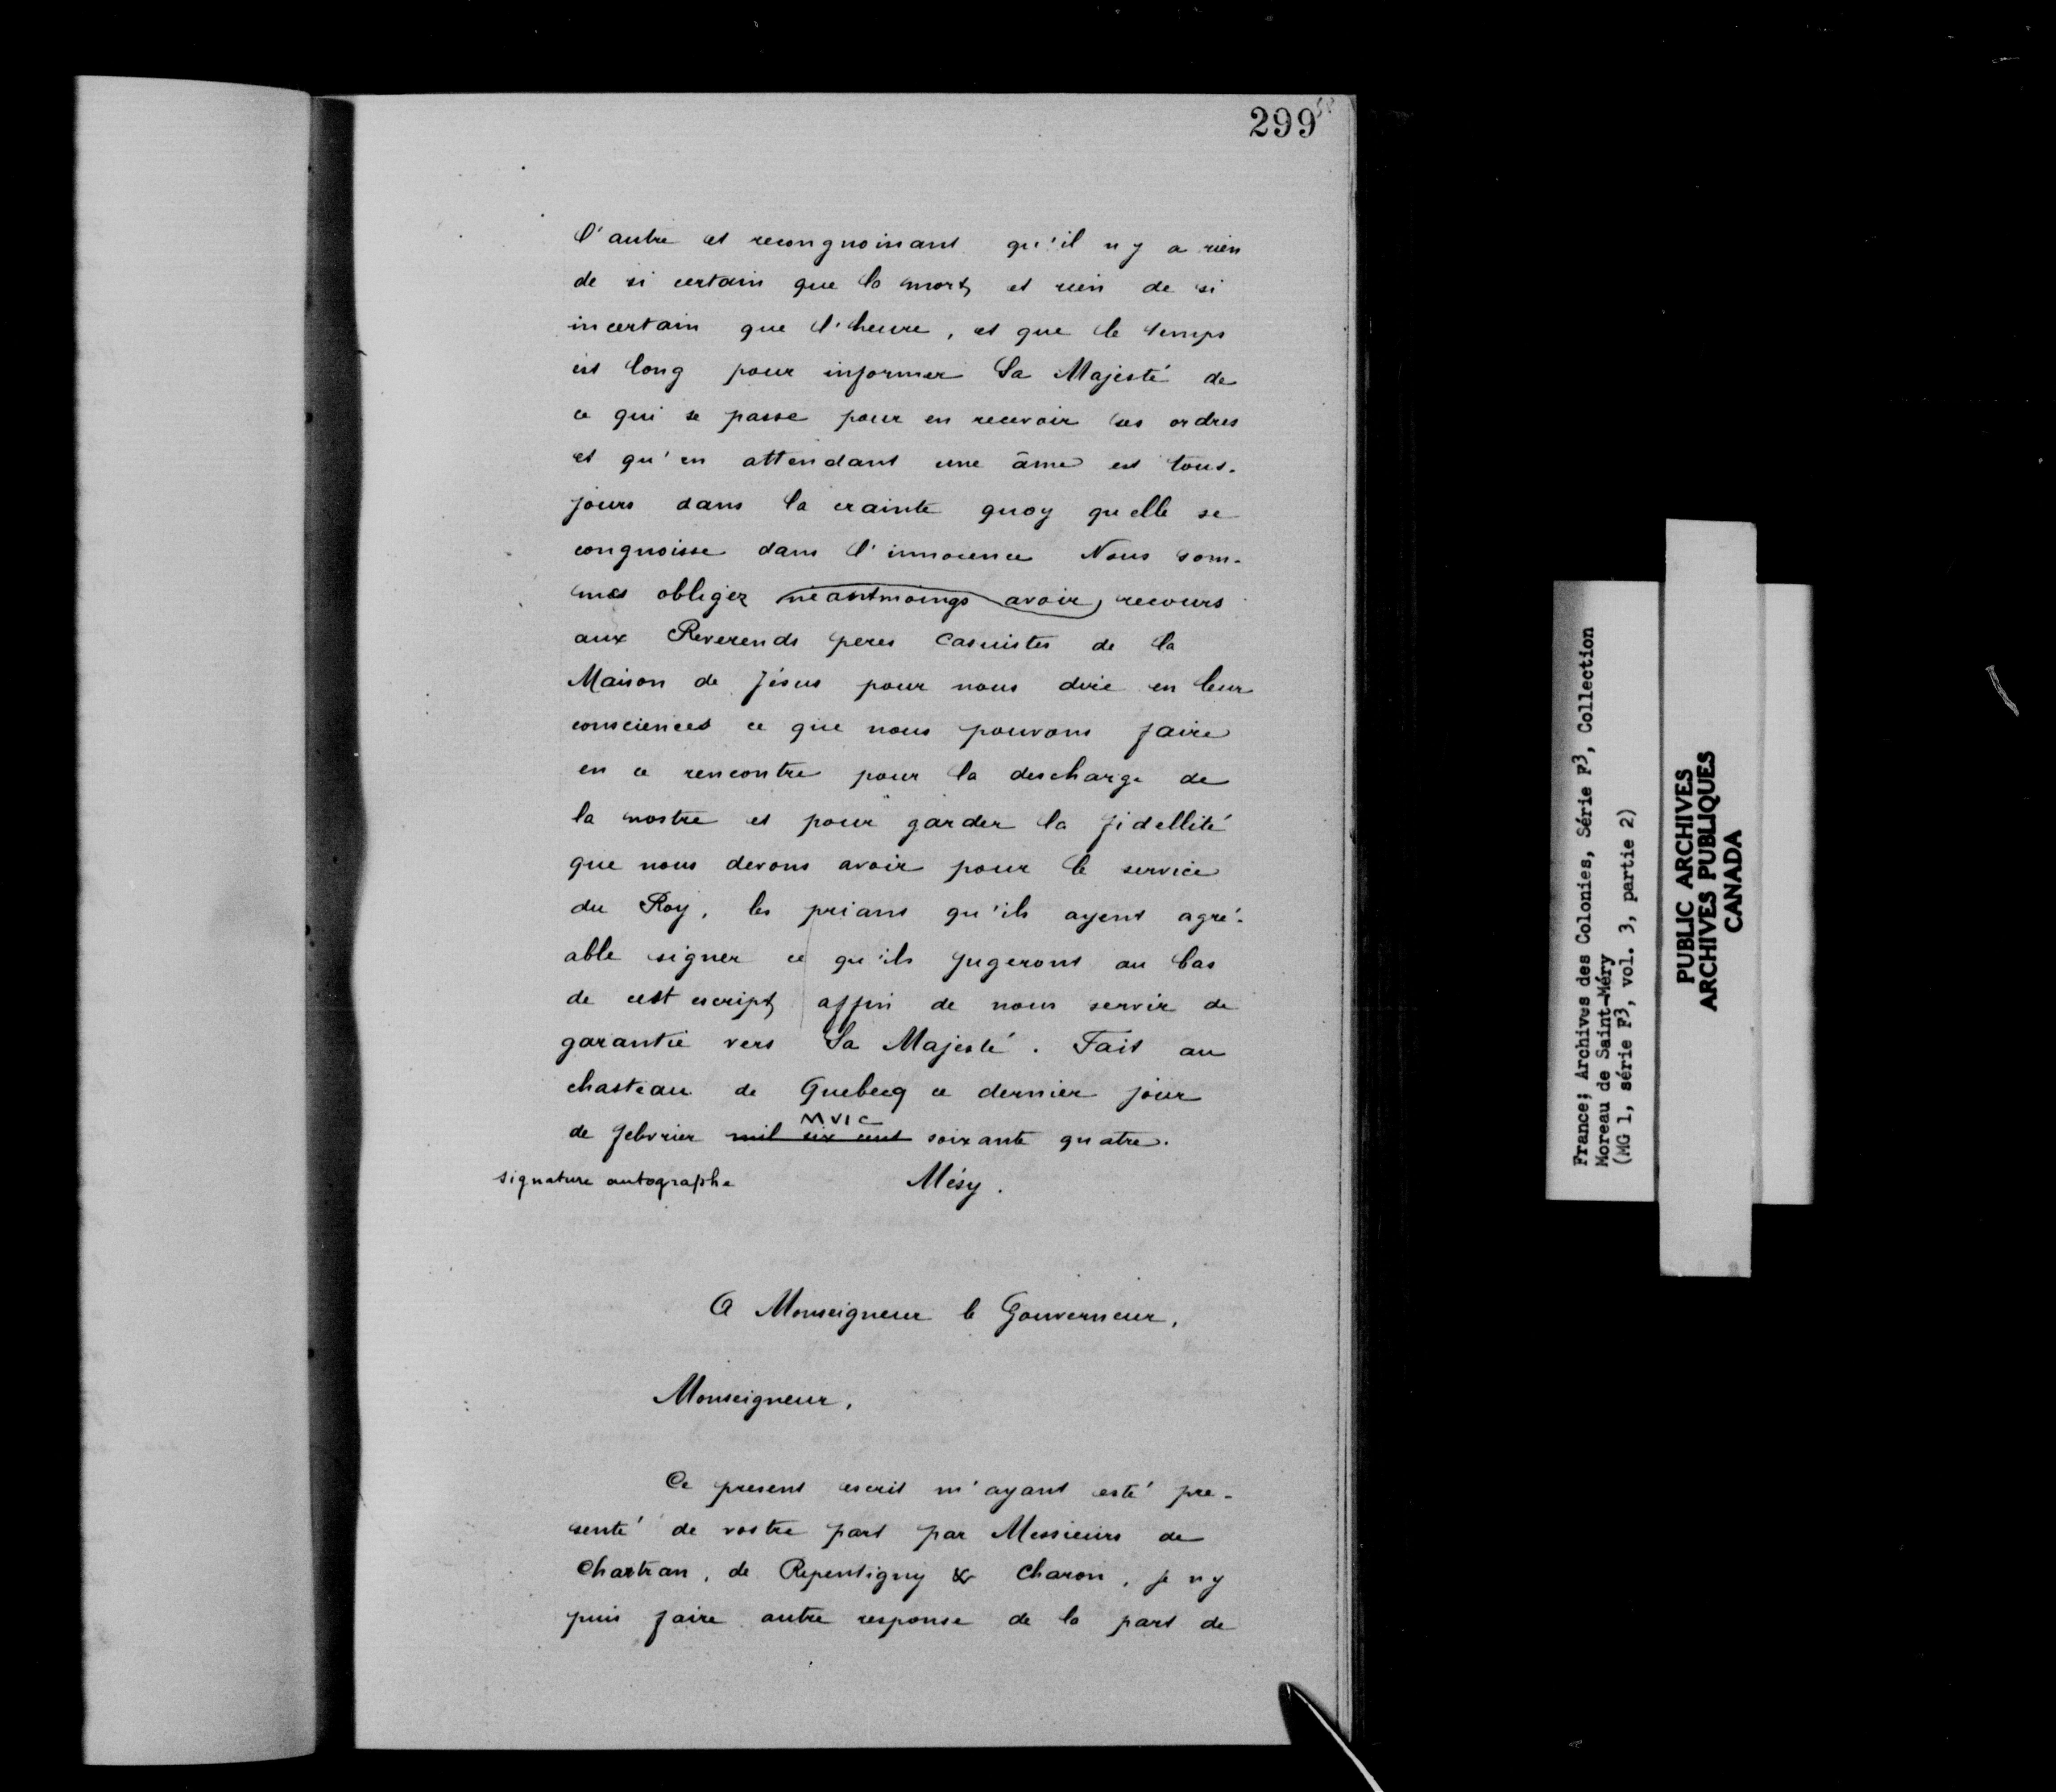 299
l'autre et recongnoinant qu'il n y a rien
de si certain que la mort, et rien de si
incertain que l'heure, et que le temps
est long pour informer Sa Majesté de
ce qui se passe pour en recevoir ses ordres
et qu'en attendant une âme est tous-
jours dans la crainte quoy qu elle se
congnoisse dans l'innocence Nous som-
mes obligez neantmoings avoir recours
aux Reverends peres Casuistes de la
Maison de Jésus pour nous dire en leur
consciences ce que nous pouvons faire
en ce rencontre pour la descharge de
la nostre et pour garder la fidellité
que nous devons avoir pour le service
du Roy, les priant qu'ils ayent agré-
able signer ce qu'ils jugeront au bas
de cest escript, affin de nous servir de
garantie vers Sa Majesté. Fait au
chasteau de Quebecq ce dernier jour
de febvrier mil six cent MVIC soixante quatre.
signature autographe Mésy.
A Monseigneur le Gouverneur,
Monseigneur,
Ce present escrit m'ayant esté pre-
senté de vostre part par Messieurs de
Chartran, de Repentigny & Charon, je n y
puis faire autre response de la part de
France; Archives des Colonies, Série F3, Collection
Moreau de Saint-Méry
(MG 1, série F3, vol. 3, partie 2)
PUBLIC ARCHIVES
ARCHIVES PUBLIQUES
CANADA